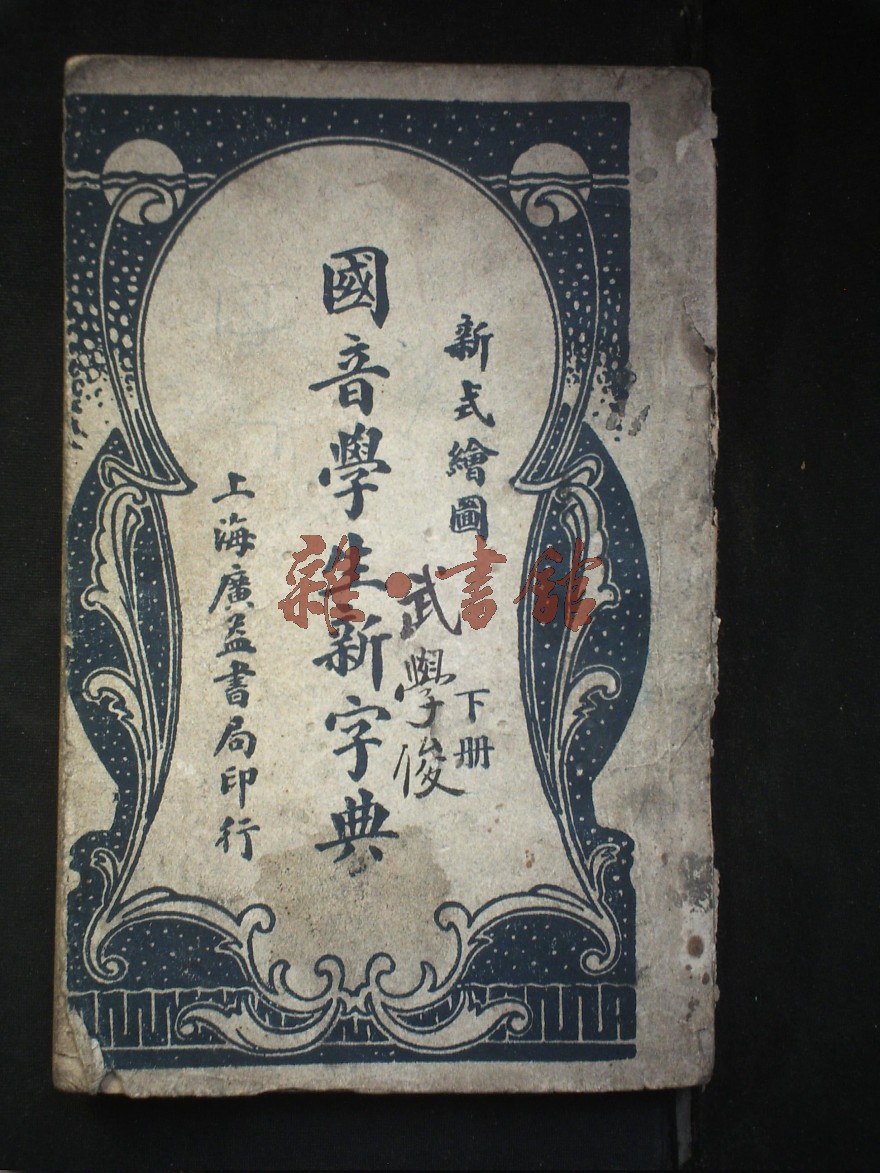 新式繪圖
下册
武學俊
國音學生新字典
上海廣益書局印行
雜·書館